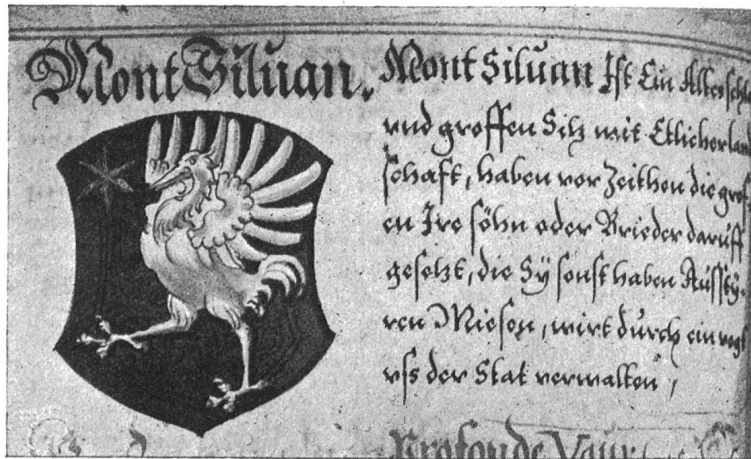 Mont Siluan.
Mont Siluan Ist Ein Alter
vnd grossen Sitz mit Etlicher
schaft, haben vor Zeithen die
en Ire söhn oder Brieder daruff
gesetzt, die Sÿ sonst haben
ren Miesen, wirt durch ein vogt
vss der Stat verwalten,
Profonde